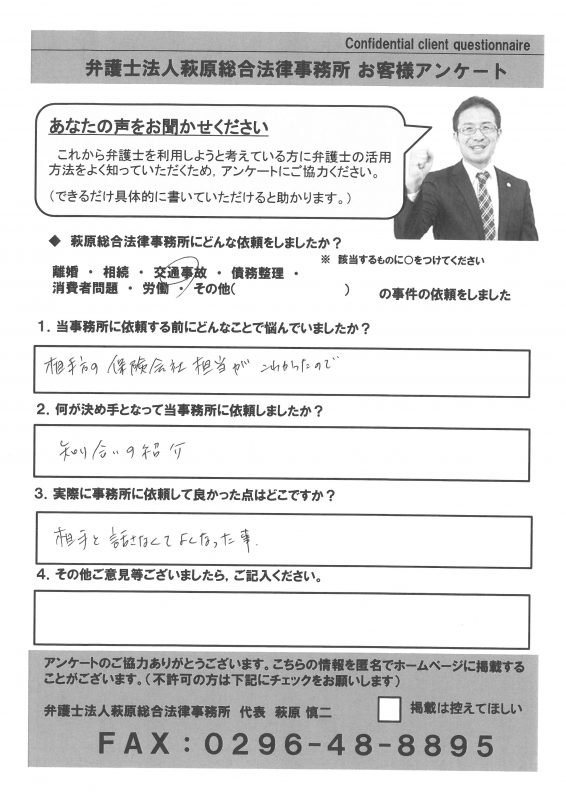 Confidential client questionnaire
弁護士法人萩原総合法律事務所 お客様アンケート
あなたの声をお聞かせください
これから弁護士を利用しようと考えている方に弁護士の活用
方法をよく知っていただくため，アンケートにご協力ください。
（できるだけ具体的に書いていただけると助かります。）
◆ 萩原総合法律事務所にどんな依頼をしましたか？
※ 該当するものに〇をつけてください
離婚 ・ 相続 ・ 交通事故 ・ 債務整理 ・
消費者問題 ・ 労働 ・ その他（　　　　　　　　） の事件の依頼をしました
１．当事務所に依頼する前にどんなことで悩んでいましたか？
相手方の保険会社担当が こわかったので
２．何が決め手となって当事務所に依頼しましたか？
知り合いの紹介
３．実際に事務所に依頼して良かった点はどこですか？
相手と話さなくてよくなった事.
４．その他ご意見等ございましたら，ご記入ください。
アンケートのご協力ありがとうございます。こちらの情報を匿名でホームページに掲載する
ことがございます。（不許可の方は下記にチェックをお願いします）
弁護士法人萩原総合法律事務所 代表 萩原 慎二
掲載は控えてほしい
FAX：0296-48-8895